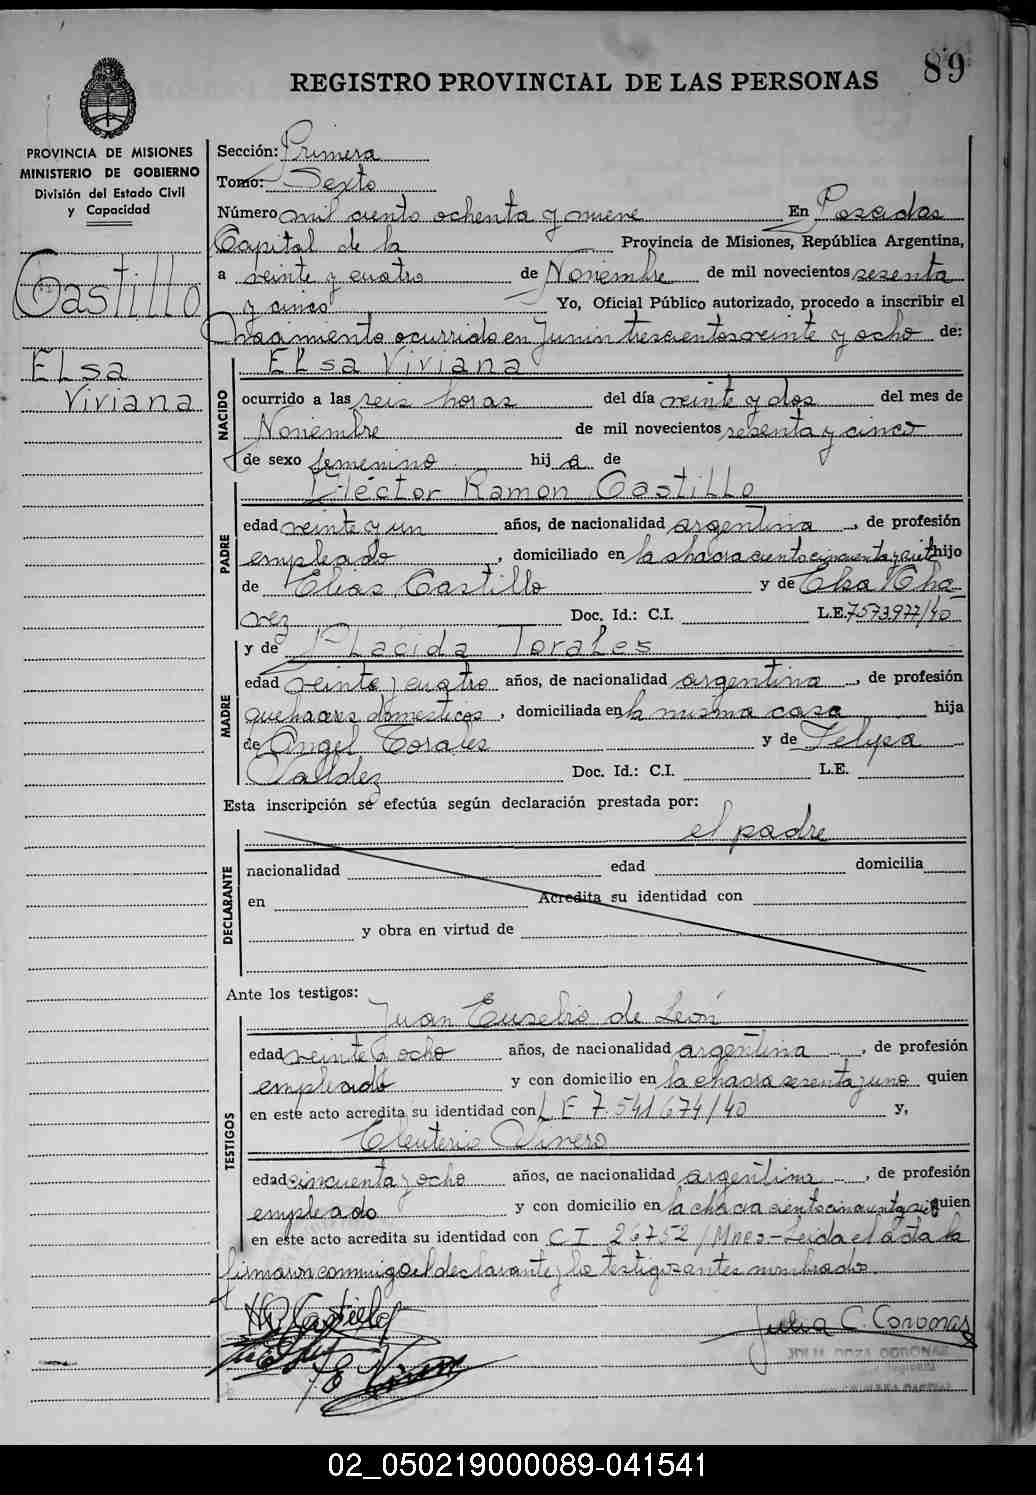 89
REGISTRO PROVINCIAL DE LAS PERSONAS
PROVINCIA DE MISIONES
MINISTERIO DE GOBIERNO
División del Estado Civil
y Capacidad
Castillo
Elsa
Viviana
Sección: Primera
Tomo: Sexto
Número mil ciento ochenta y nueve En Posadas
Capital de la Provincia de Misiones, República Argentina,
a veinte y cuatro de Noviembre de mil novecientos sesenta
y cinco Yo, Oficial Público autorizado, procedo a inscribir el
Nacimiento ocurrido en Junin trescientos veinte y ocho de:
NACIDO
Elsa Viviana
ocurrido a las seis horas del día veinte y dos del mes de
Noviembre de mil novecientos sesenta y cinco
de sexo femenino hij a de
PADRE
Héctor Ramon Castillo
edad veinte y un años, de nacionalidad argentina, de profesión
empleado, domiciliado en la chacra ciento cincuenta y hijo
de Elias Castillo y de Elsa Cha-
vez Doc. Id.: C.I. L.E. 7573.977/40
MADRE
y de Placida Torales
edad veinte y cuatro años, de nacionalidad argentina, de profesión
quehaceres domesticos, domiciliada en la misma casa hija
de Angel Torales y de Felipa
Valdez Doc. Id.: C.I. L.E.
Esta inscripción se efectúa según declaración prestada por:
el padre
DECLARANTE
nacionalidad edad domicilia
en Acredita su identidad con
y obra en virtud de
Ante los testigos:
TESTIGOS
Juan Eusebio de León
edad veinte y ocho años, de nacionalidad argentina, de profesión
empleado y con domicilio en la chacra sesenta y uno quien
en este acto acredita su identidad con L E 7.541674/40 y,
Eleuterio Vivero
edad cincuenta y ocho años, de nacionalidad argentina, de profesión
empleado y con domicilio en la chacra ciento cincuenta y quien
en este acto acredita su identidad con C I 26752/Mnes-Leida el acta la
firmaron conmigo el declarante y los testigos antes nombrados.
H R Castillo
Julia C. Coronas
02_050219000089-041541